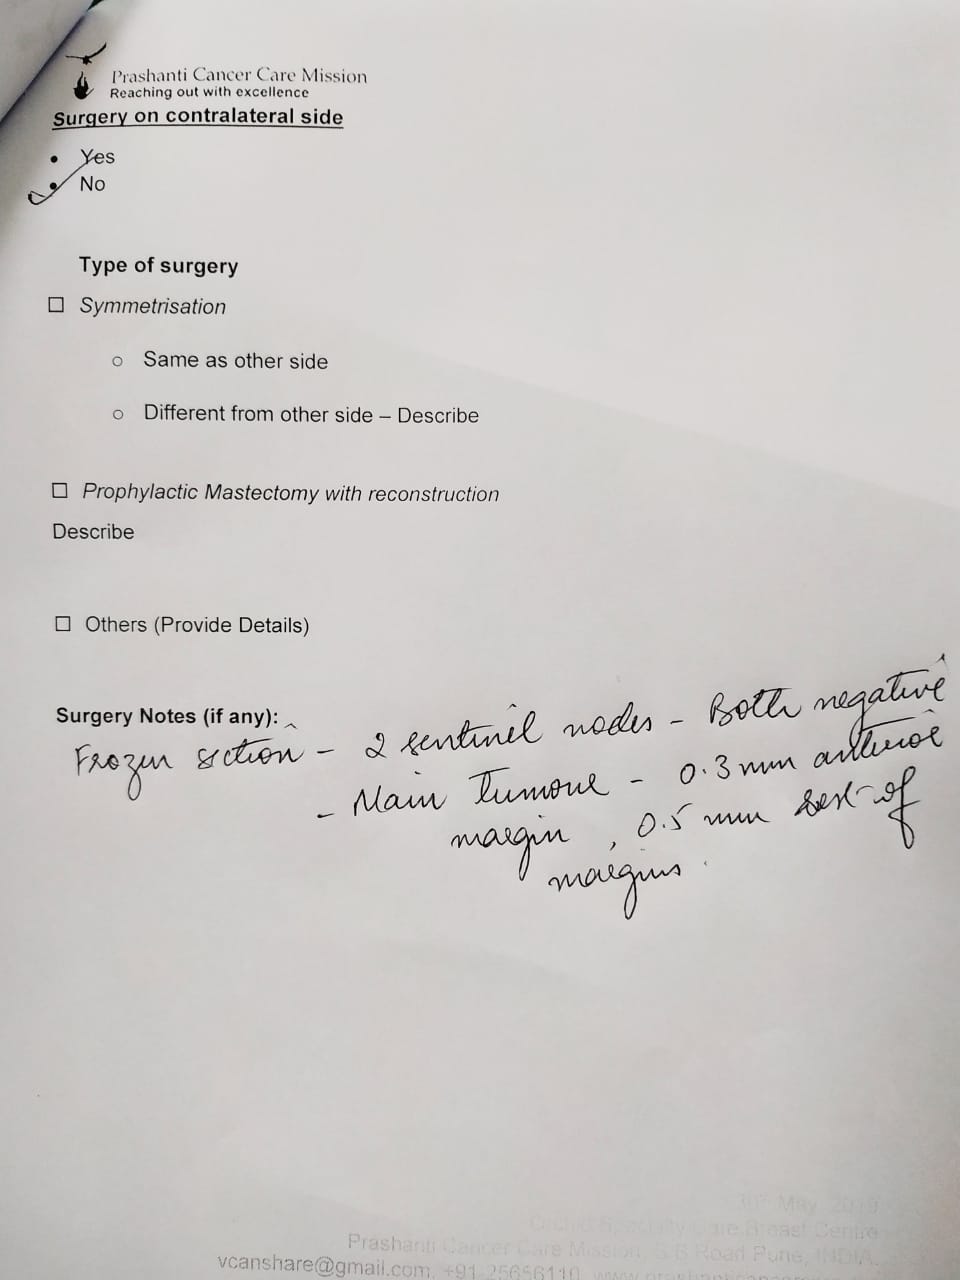 Prashanti Cancer Care Mission
Reaching out with excellence
Surgery on contralateral side
• Yes
• No
Type of surgery
☐ Symmetrisation
o Same as other side
o Different from other side – Describe
☐ Prophylactic Mastectomy with reconstruction
Describe
☐ Others (Provide Details)
Surgery Notes (if any):
Frozen section – 2 sentinel nodes – Both negative
– Main Tumour – 0.3 mm anterior
margin, 0.5 mm rest of
margins.
30th May, 2019
Orchid Specialty Care Breast Centre
Prashanti Cancer Care Mission, S B Road Pune, INDIA.
vcanshare@gmail.com, +91 25656110